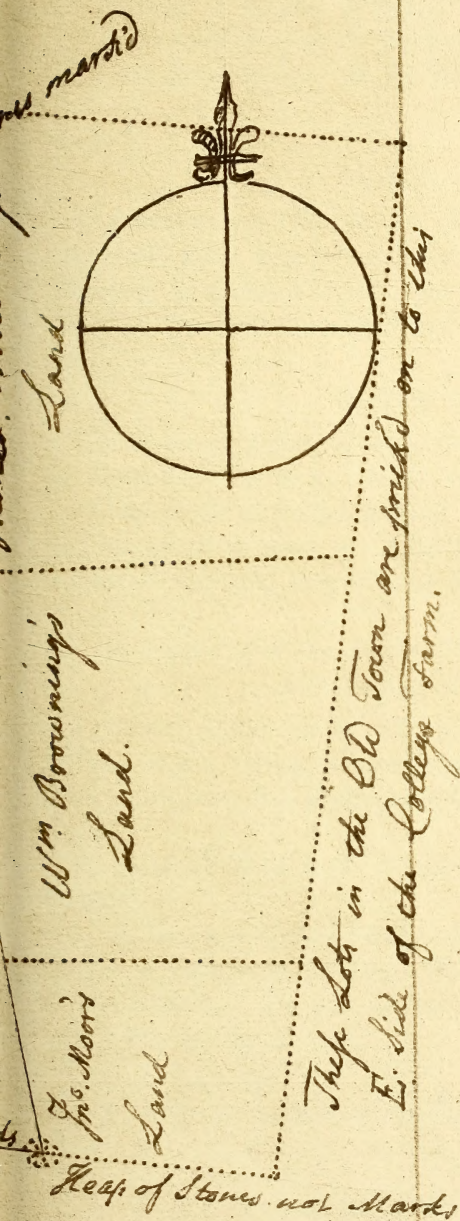 mark'd
Land
Wm. Brownings
Land.
Jno. Moors
Land
These Lots in the Old Town are pricked on to this
E. Side of the College Farm.
Heap of Stones not Marks